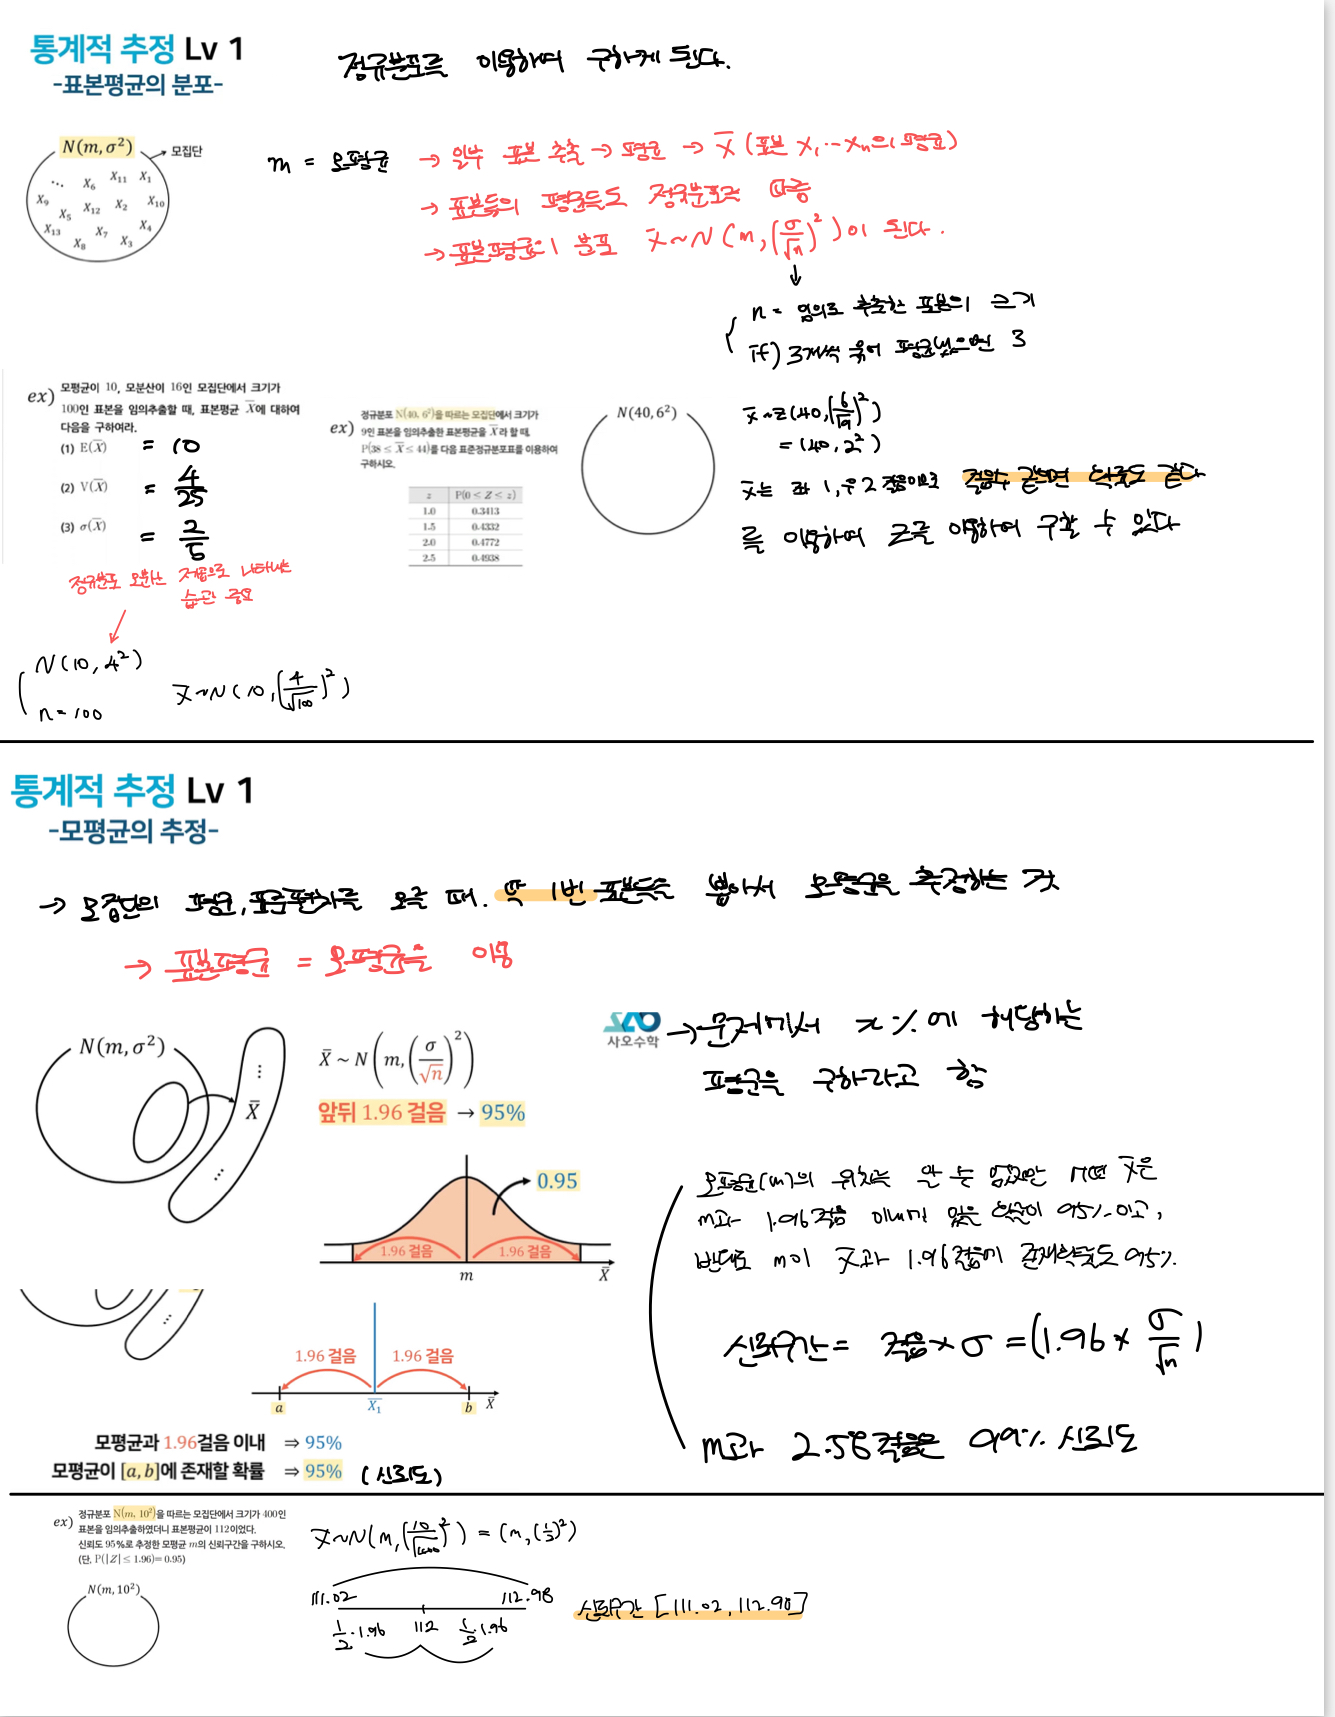 통계적 추정 Lv 1
-표본평균의 분포-
정규분포를 이용하여 구하게 된다.
N(m, σ²)
모집단
... X₆ X₁₁ X₁
X₉ X₅ X₁₂ X₂ X₁₀
X₁₃ X₈ X₇ X₃ X₄
m = 모평균 → 일부 표본 추출 → 평균 → X̄ (표본 X₁ ... Xₙ의 평균)
→ 표본들의 평균들도 정규분포를 따름
→ 표본평균의 분포 X̄ ~ N(m, (σ/√n)²)이 된다.
↓
n = 임의로 추출한 표본의 크기
if) 3개씩 묶어 평균냈으면 3
ex) 모평균이 10, 모분산이 16인 모집단에서 크기가
100인 표본을 임의추출할 때, 표본평균 X̄에 대하여
다음을 구하여라.
(1) E(X̄) = 10
(2) V(X̄) = 4/25
(3) σ(X̄) = 2/5
정규분포 모분산 제곱으로 나타내는
습관 중요
N(10, 4²)
n = 100
X̄~N(10, (4/√100)²)
ex) 정규분포 N(40, 6²)을 따르는 모집단에서 크기가
9인 표본을 임의추출한 표본평균을 X̄라 할 때,
P(38 ≤ X̄ ≤ 44)를 다음 표준정규분포표를 이용하여
구하시오.
z P(0 ≤ Z ≤ z)
1.0 0.3413
1.5 0.4332
2.0 0.4772
2.5 0.4938
N(40, 6²)
X̄~Z(40, (6/√9)²)
= (40, 2²)
X̄는 좌 1, 우 2 걸음이므로 걸음수 같으면 확률도 같다
를 이용하여 표를 이용하여 구할 수 있다
통계적 추정 Lv 1
-모평균의 추정-
→ 모집단의 평균, 표준편차를 모를 때. 딱 1번 표본들을 뽑아서 모평균을 추정하는 것
→ 표본평균 = 모평균을 이용
N(m, σ²)
X̄
X̄ ~ N(m, (σ/√n)²)
앞뒤 1.96 걸음 → 95%
0.95
1.96 걸음 1.96 걸음
m X̄
사오수학
→ 문제에서 x%에 해당하는
평균을 구하라고 함
모평균(m)의 위치는 알 수 없지만 X̄은
m과 1.96걸음 이내에 있을 확률이 95%이고,
반대로 m이 X̄과 1.96걸음에 존재확률도 95%.
신뢰구간 = 걸음×σ = (1.96 × σ/√n)
m과 2.58걸음은 99% 신뢰도
1.96 걸음 1.96 걸음
a X̄₁ b X̄
모평균과 1.96걸음 이내 ⇒ 95%
모평균이 [a, b]에 존재할 확률 ⇒ 95% (신뢰도)
ex) 정규분포 N(m, 10²)을 따르는 모집단에서 크기가 400인
표본을 임의추출하였더니 표본평균이 112이었다.
신뢰도 95%로 추정한 모평균 m의 신뢰구간을 구하시오.
(단, P(|Z| ≤ 1.96)= 0.95)
N(m, 10²)
X̄~N(m, (10/√400)²) = (m, (1/2)²)
111.02 112.98
1/2·1.96 112 1/2·1.96
신뢰구간 [111.02, 112.98]